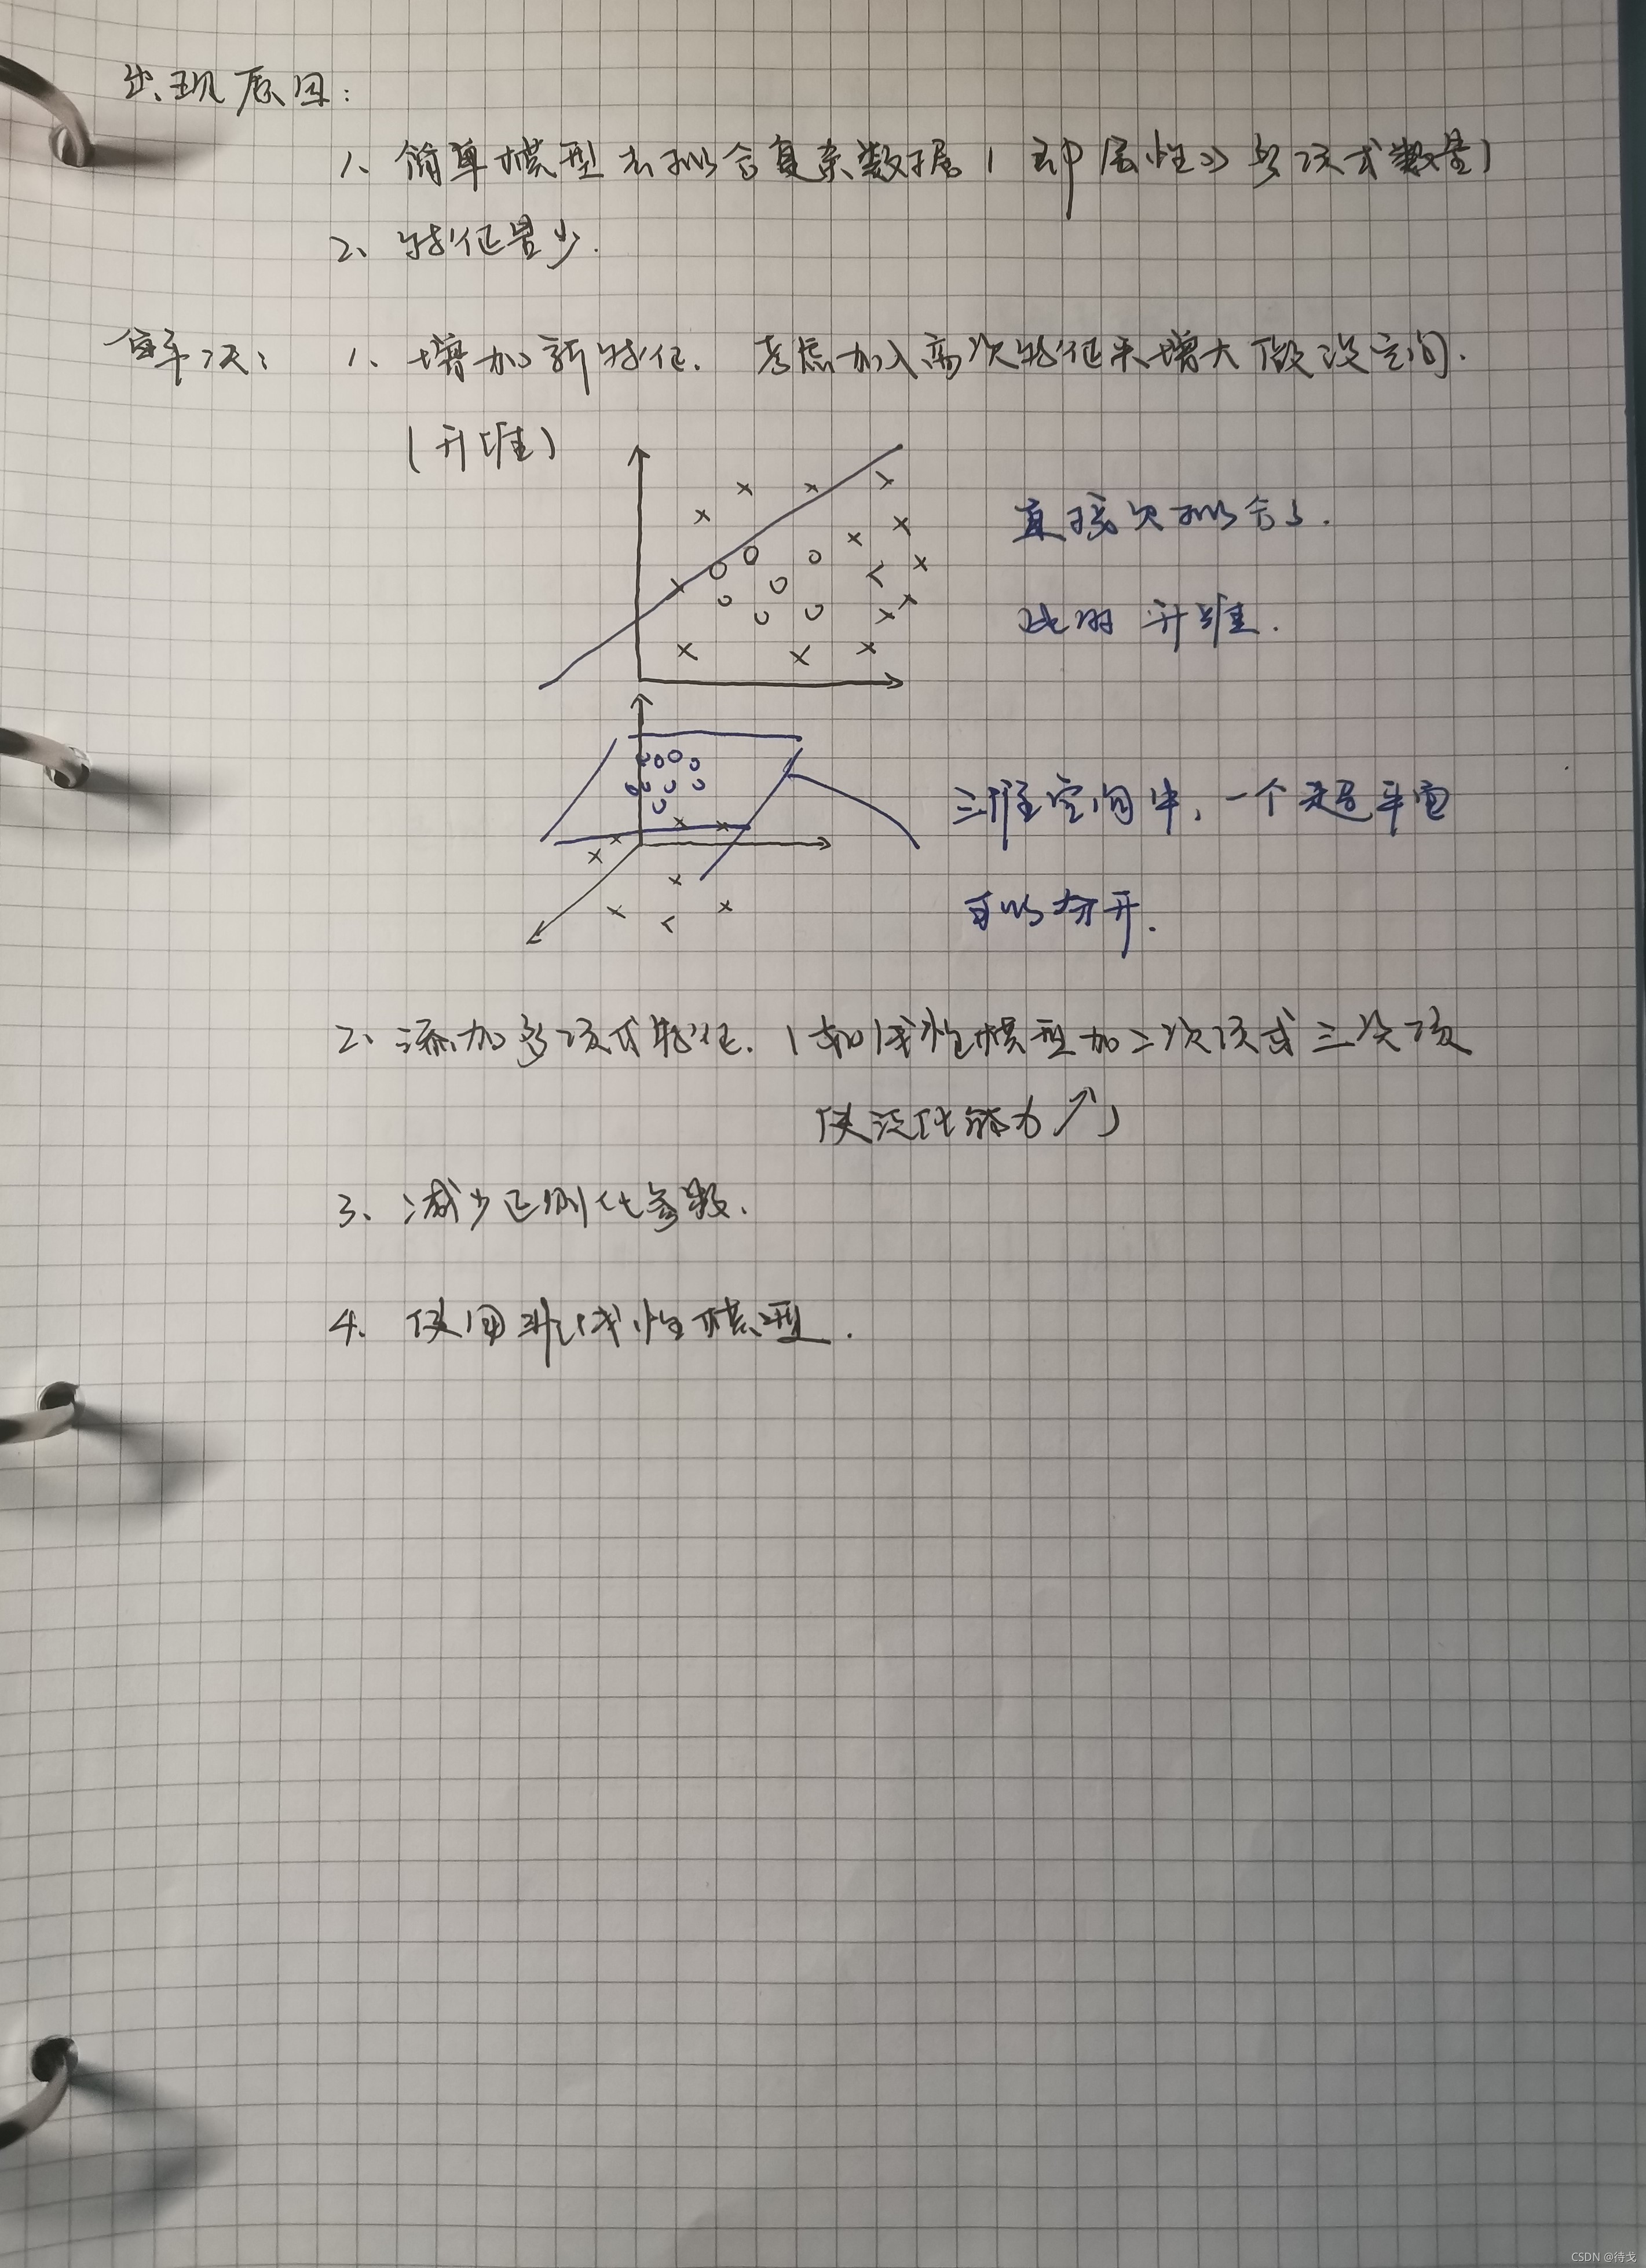 出现原因：
1、简单模型去拟合复杂数据（即属性≫多项式数量）
2、特征量少.
解决： 1、增加新特征. 考虑加入高次特征来增大假设空间.
(升维)
直接欠拟合了.
此时 升维.
三维空间中，一个超平面
可以分开.
2、添加多项式特征. (如线性模型加二次项或三次项
使泛化能力↗)
3、减少正则化参数.
4. 使用非线性模型.
CSDN @待戈